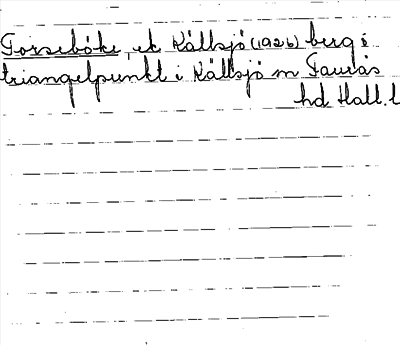 Torseböke, ek Källsjö (1926) berg o
triangelpunkt i Källsjö sn Faurås
hd Hall. l